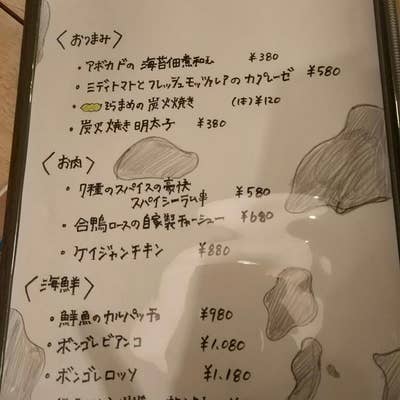 〈おつまみ〉
・アボカドの 海苔佃煮和え ¥380
・ミディトマトとフレッシュモッツァレアの カプレーゼ ¥580
・そらまめの 炭火焼き (1本)¥120
・炭火焼き明太子 ¥380
〈お肉〉
・7種のスパイスの豪快
スパイシーラム串 ¥580
・合鴨ロースの自家製チャーシュー ¥680
・ケイジャンチキン ¥880
〈海鮮〉
・鮮魚のカルパッチョ ¥980
・ボンゴレビアンコ ¥1,080
・ボンゴレロッソ ¥1,180